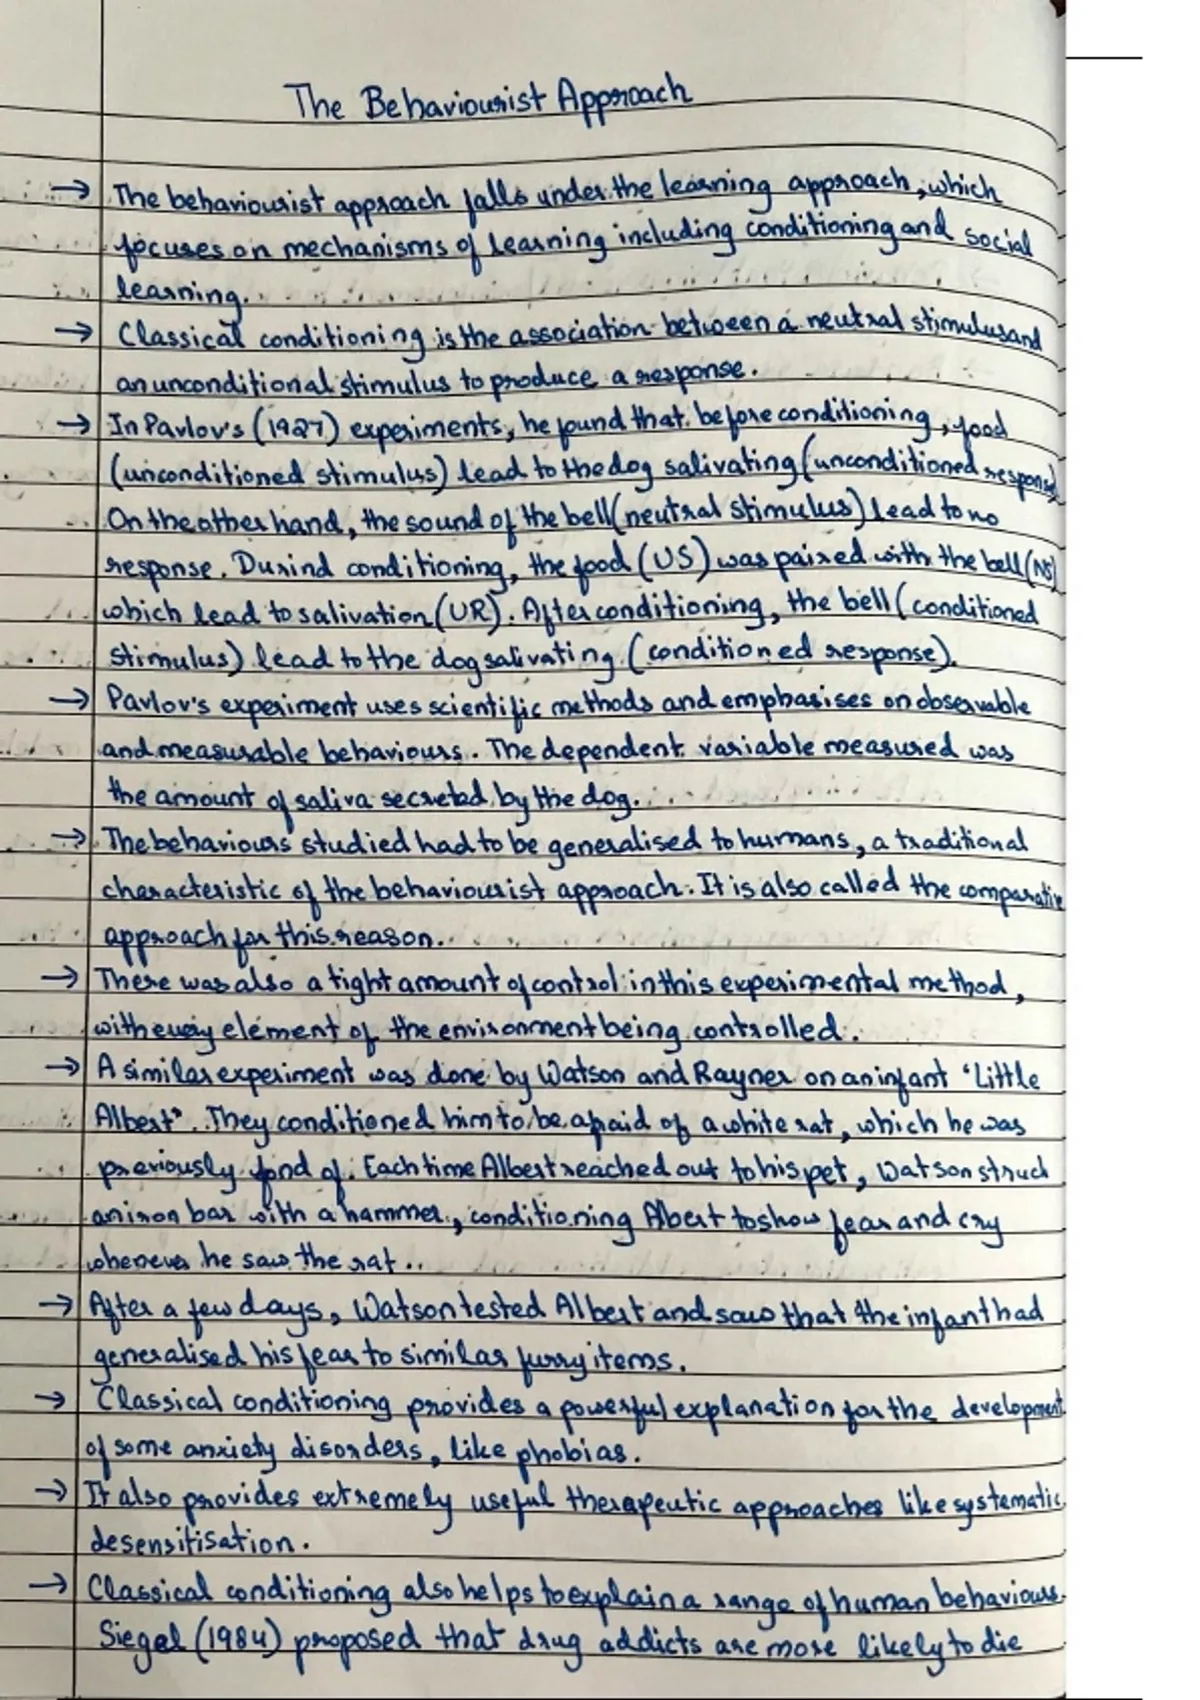 The Behaviourist Approach
→ The behaviourist approach falls under the learning approach, which
focuses on mechanisms of learning including conditioning and social
learning.
→ Classical conditioning is the association between a neutral stimulus and
an unconditional stimulus to produce a response.
→ In Pavlov's (1927) experiments, he found that before conditioning, food
(unconditioned stimulus) lead to the dog salivating (unconditioned response)
On the other hand, the sound of the bell (neutral stimulus) lead to no
response. Durind conditioning, the food (US) was paired with the bell (NS)
which lead to salivation (UR). After conditioning, the bell (conditioned
stimulus) lead to the dog salivating (conditioned response).
→ Pavlov's experiment uses scientific methods and emphasises on observable
and measurable behaviours. The dependent variable measured was
the amount of saliva secreted by the dog.
→ The behaviours studied had to be generalised to humans, a traditional
characteristic of the behaviourist approach. It is also called the comparative
approach for this reason.
→ There was also a tight amount of control in this experimental method,
with every element of the environment being controlled.
→ A similar experiment was done by Watson and Rayner on an infant 'Little
Albert'. They conditioned him to be afraid of a white rat, which he was
previously fond of. Each time Albert reached out to his pet, Watson struck
an iron bar with a hammer, conditioning Albert to show fear and cry
whenever he saw the rat.
→ After a few days, Watson tested Albert and saw that the infant had
generalised his fear to similar furry items.
→ Classical conditioning provides a powerful explanation for the development
of some anxiety disorders, like phobias.
→ It also provides extremely useful therapeutic approaches like systematic
desensitisation.
→ Classical conditioning also helps to explain a range of human behaviours.
Siegel (1984) proposed that drug addicts are more likely to die